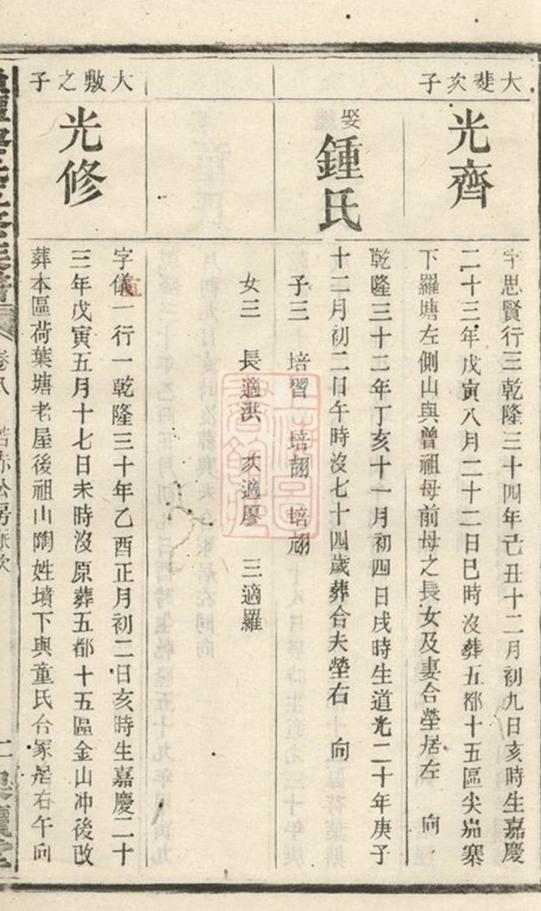 大斐次子
光齊
字思賢行三乾隆三十四年己丑十二月初九日亥時生嘉慶
二十三年戊寅八月二十二日巳時沒葬五都十五區尖嵓寨
下羅塘左側山與曾祖母前母之長女及妻合塋居左 向
娶
鍾氏
乾隆三十二年丁亥十一月初四日戌時生道光二十年庚子
十二月初二日午時沒七十四歲葬合夫塋右 向
子三 培習 培翃 培翊
女三 長適洪 次適廖 三適羅
大敷之子
光修
字儀一行一乾隆三十年乙酉正月初二日亥時生嘉慶二十
三年戊寅五月十七日未時沒原葬五都十五區金山冲後改
葬本區荷葉塘老屋後祖山陶姓墳下與童氏合冢居右午向
卷八